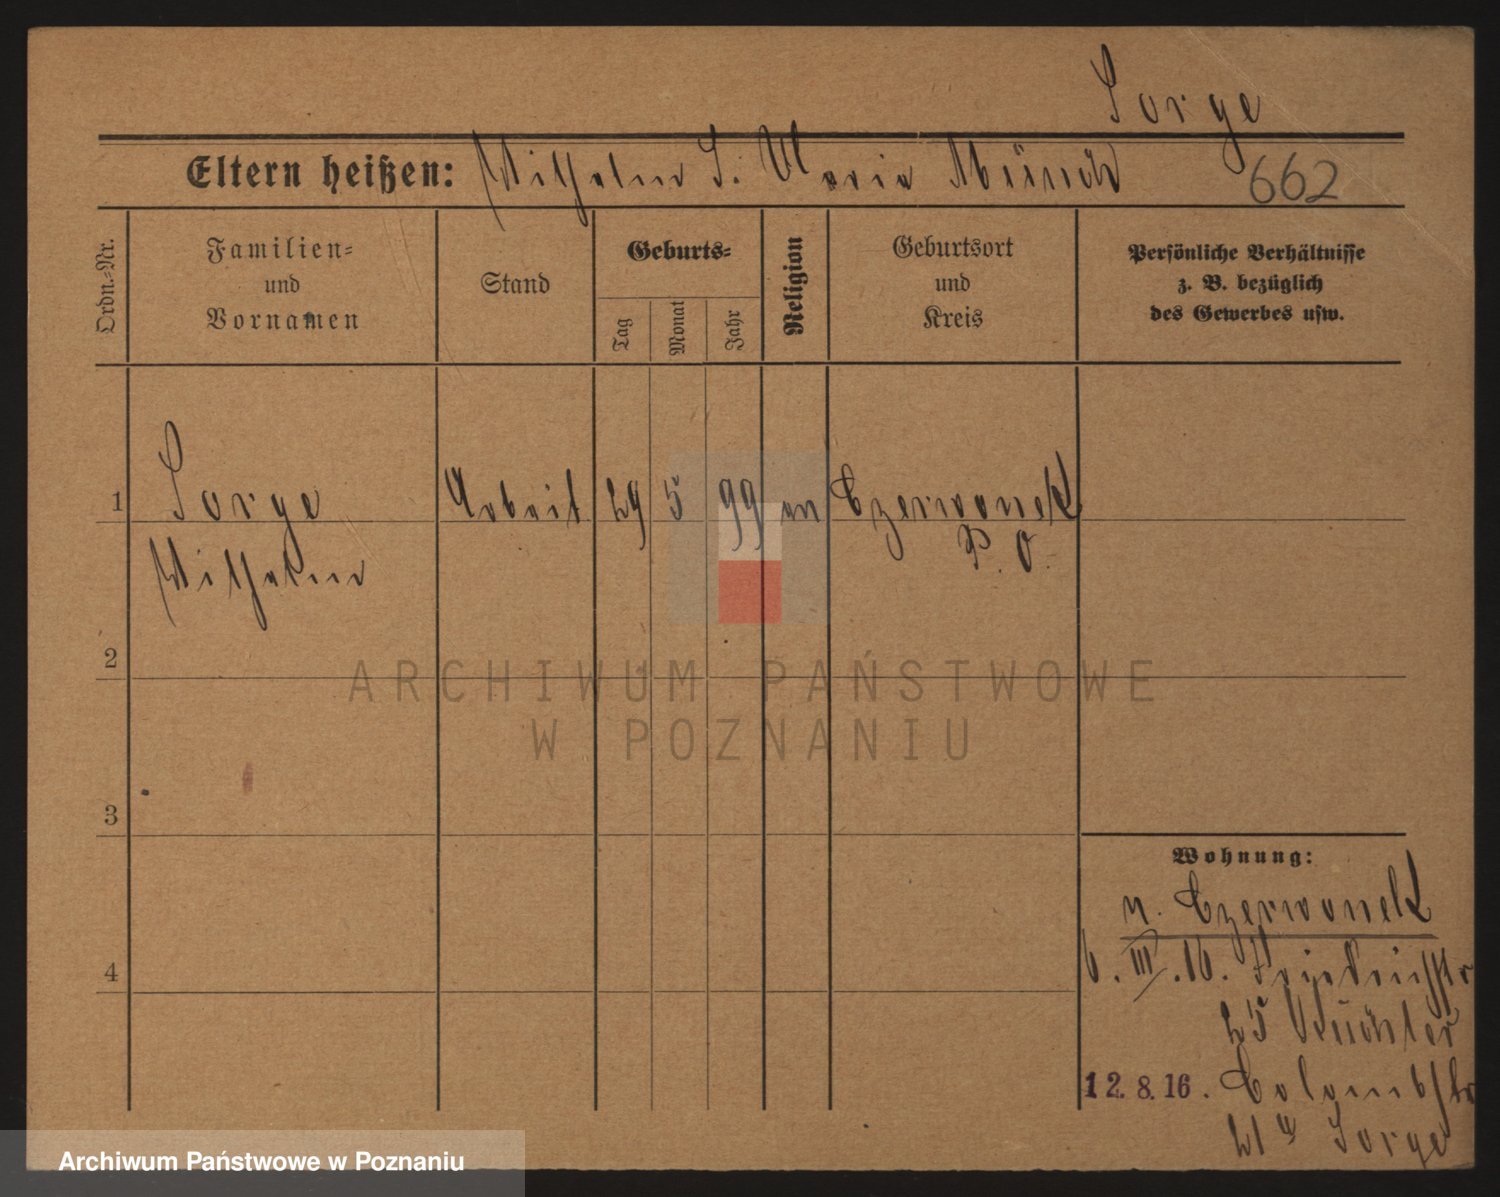 Sorge
Eltern heißen: Wilhelm S. Maria Münch
662
Ordn.-Nr.
Familien-
und
Vornamen
Stand
Geburts-
Tag
Monat
Jahr
Religion
Geburtsort
und
Kreis
Persönliche Verhältnisse
z. B. bezüglich
des Gewerbes usw.
1 Sorge Arbeit 29 5 99 ev Czerwonek
Wilhelm P. O.
2
ARCHIWUM PAŃSTWOWE
W POZNANIU
3
Wohnung:
n. Czerwonek
4
6. III. 16. Friedrichstr
25
12. 8. 16. Colombstr
21 Sorge
Archiwum Państwowe w Poznaniu